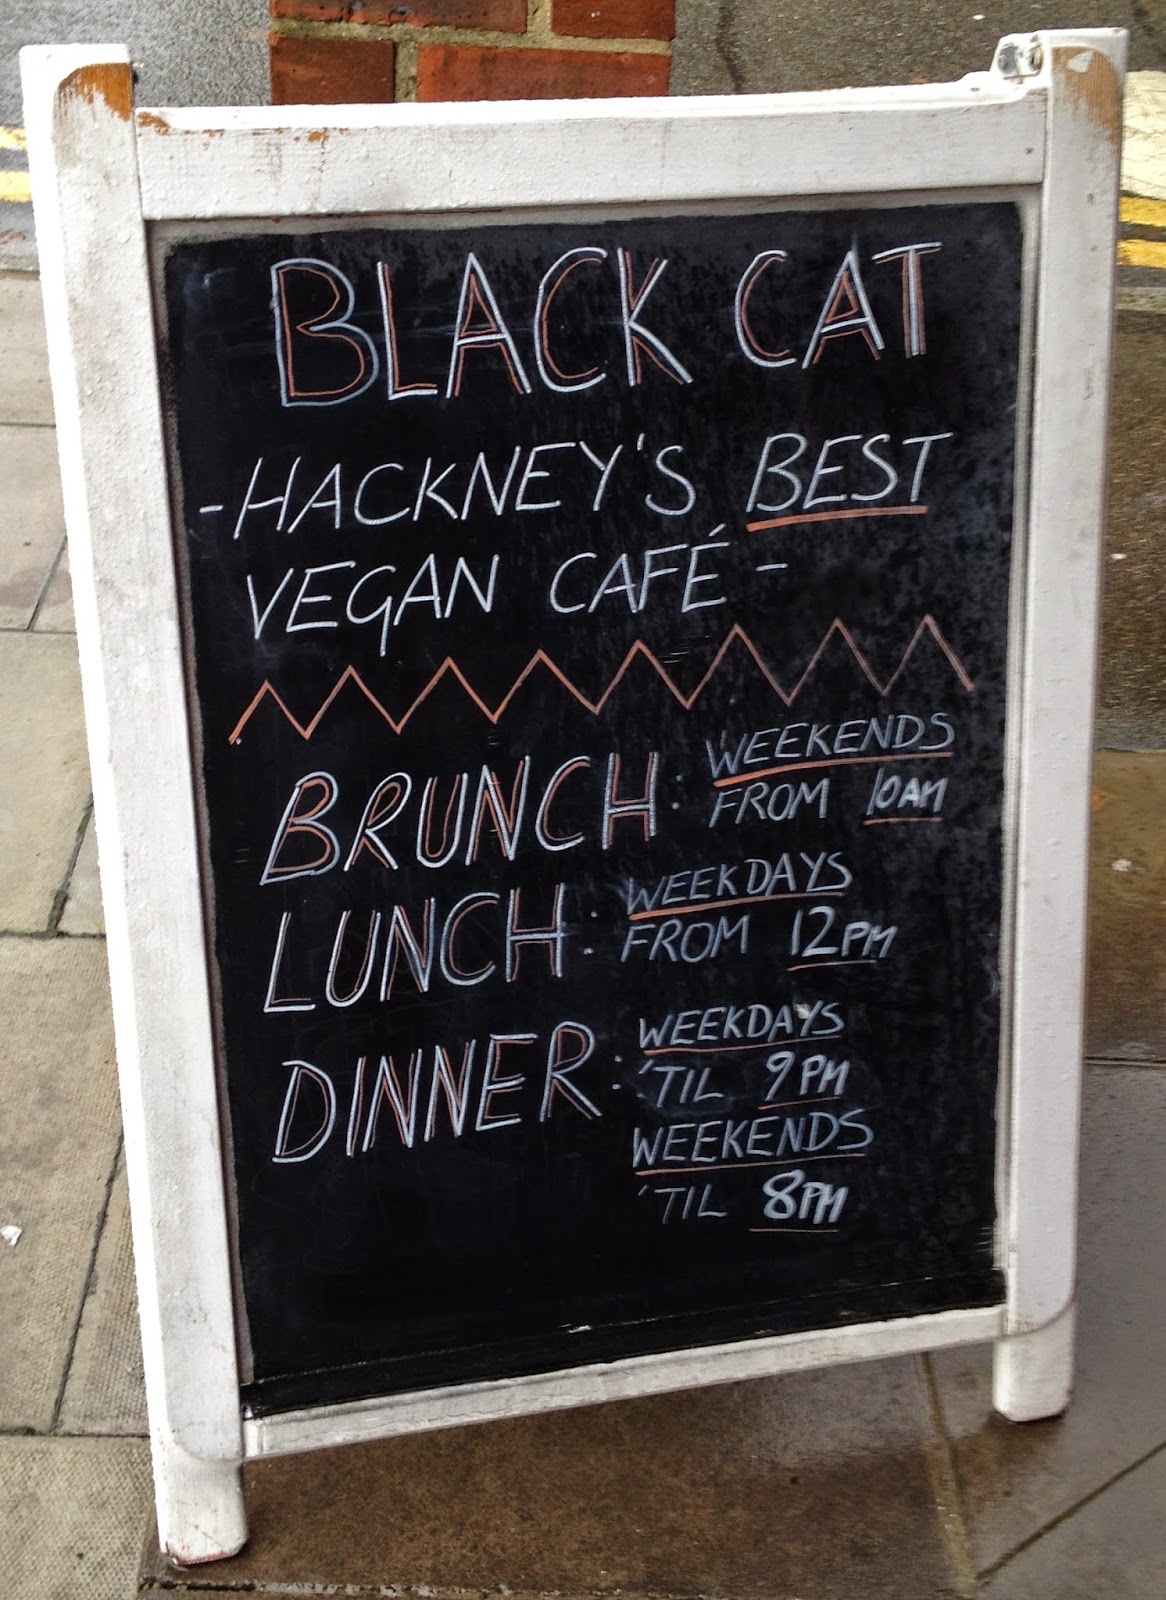 BLACK CAT
- HACKNEY'S BEST
VEGAN CAFÉ -
BRUNCH: WEEKENDS
FROM 10AM
LUNCH: WEEKDAYS
FROM 12PM
DINNER: WEEKDAYS
'TIL 9PM
WEEKENDS
'TIL 8PM